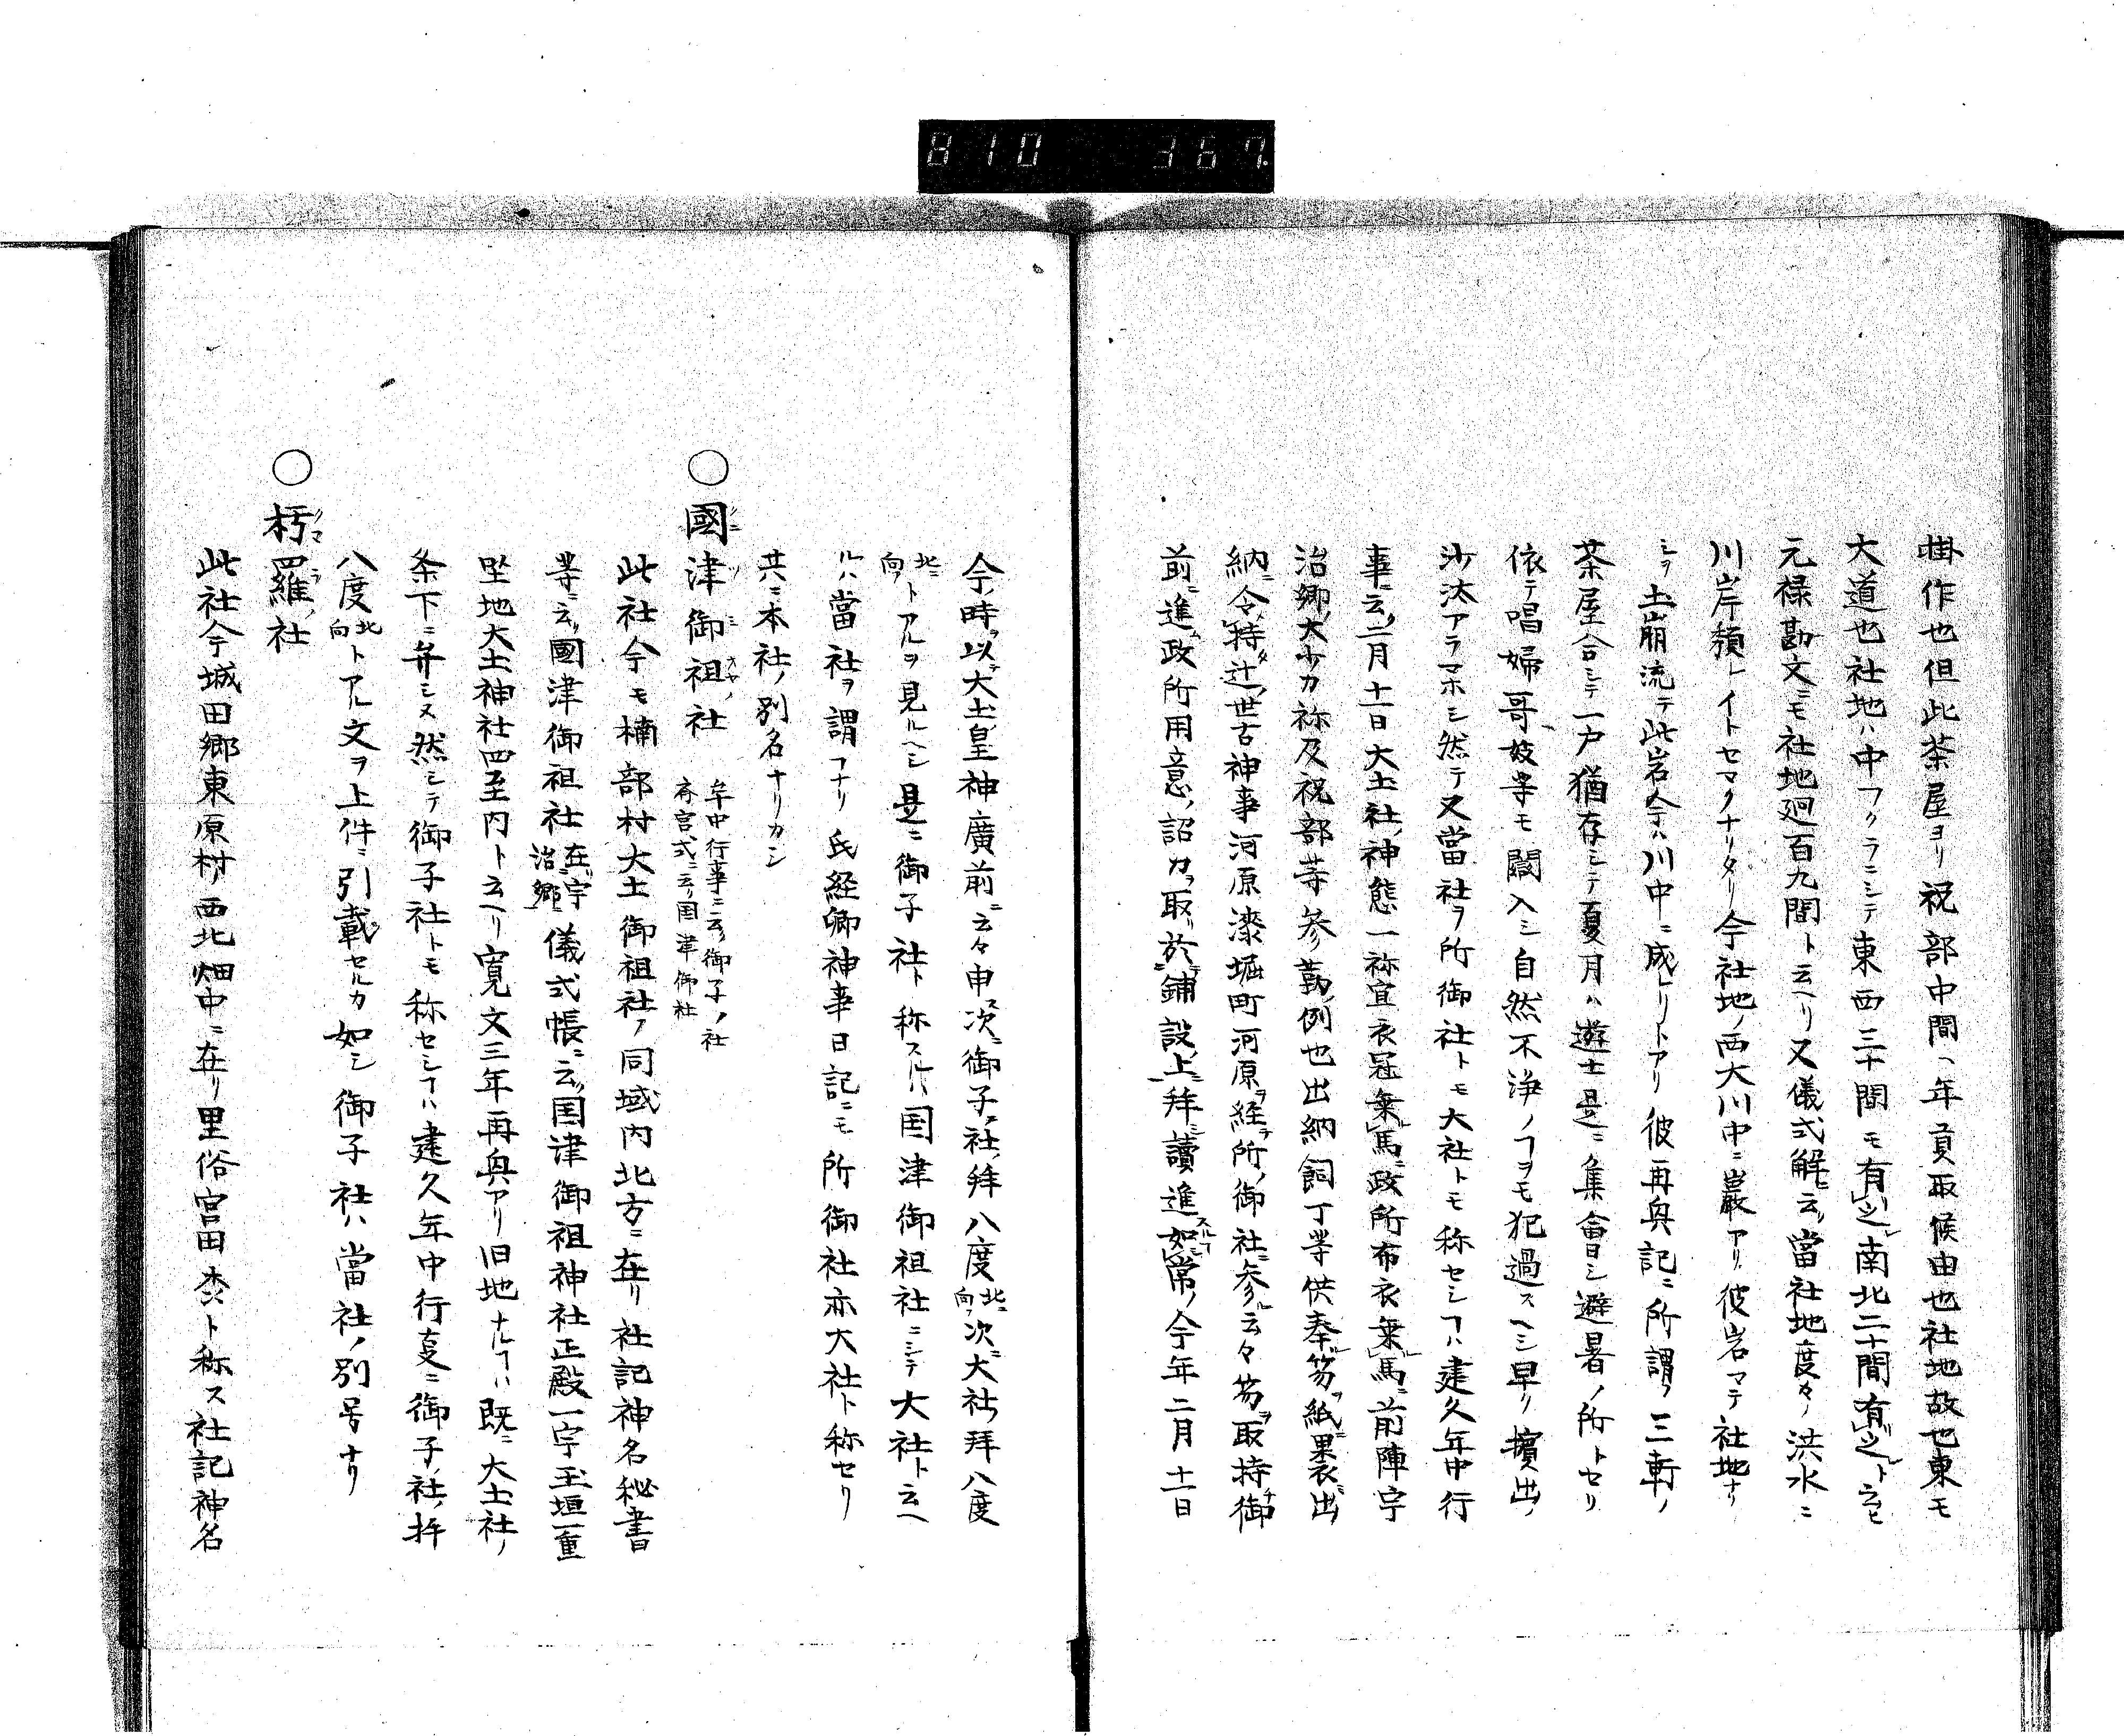 810 367
掛作也但此茶屋ヨリ祝部中間ヘ年貢取候由也社地故也東モ
大道也社地ハ中フクラニシテ東西三十間モ有之南北二十間有之ト云ヒ
元禄勘文ニモ社地廻百九間ト云ヘリ又儀式解ニ云當社地度々ノ洪水ニ
川岸頽レイトセマクナリタリ今社地ノ西大川中ニ巖アリ彼岩マテ社地ナリ
シヲ土崩流テ此岩今ハ川中ニ成ヒリトアリ彼再興記ニ所謂ノ三軒ノ
茶屋合シテ一戸猶存シテ夏月ハ遊士是ニ集會シ避暑ノ所トセリ
依テ唱婦哥妓等モ闘入シ自然不浄ノヿヲモ犯過スヘシ早ク擯出ノ
沙汰アラマホシ然テ又當社ヲ所御社トモ大社トモ称セシヿハ建久年中行
事ニ云二月十一日大土社神態一祢宜衣冠乗馬ニ政所布衣乗馬ニ前陣宇
治郷ノ大少カ祢及祝部等参勤ノ例也出納飼丁等供奉笏ヲ紙裹衣出
納ニ令持辻世古神事河原漆堀町河原ヲ経テ所ノ御社ニ参ル云々笏ヲ取持御
前ニ進政所用意ノ詔カヲ取リ於鋪設上拜讀進スルヿ如常ノ今年二月十一日
今時ヲ以テ大土皇神廣前ニ云々申ス次ニ御子社拜八度北ニ向フ次ニ大社拜八度
北ニ向フトアルヲ見ルヘシ是ニ御子社ト称スルハ国津御祖社ニシテ大社ト云ヘ
ルハ當社ヲ謂フナリ氏経卿神事日記ニモ所御社亦大社ト称セリ
共ニ本社ノ別名ナリカシ
○國津御祖社 年中行事ニ云御子ノ社
斎宮式ニ云国津御社
此社今モ楠部村大土御祖社ノ同域内北方ニ在リ社記神名秘書
等ニ云國津御祖社在宇治郷儀式帳ニ云国津御祖神社正殿一宇玉垣一重
坐地大土神社四至内ト云ヘリ寛文三年再興アリ旧地ナルヿハ既ニ大土社ノ
条下ニ弁シヌ然シテ御子社トモ称セシヿハ建久年中行亊ニ御子ノ社ノ拜
八度北向トアル文ヲ上件ニ引載セルカ如シ御子社ハ當社ノ別号ナリ
○朽羅社
此社今城田郷東原村ノ西北畑中ニ在リ里俗宮田森ト称ス社記神名